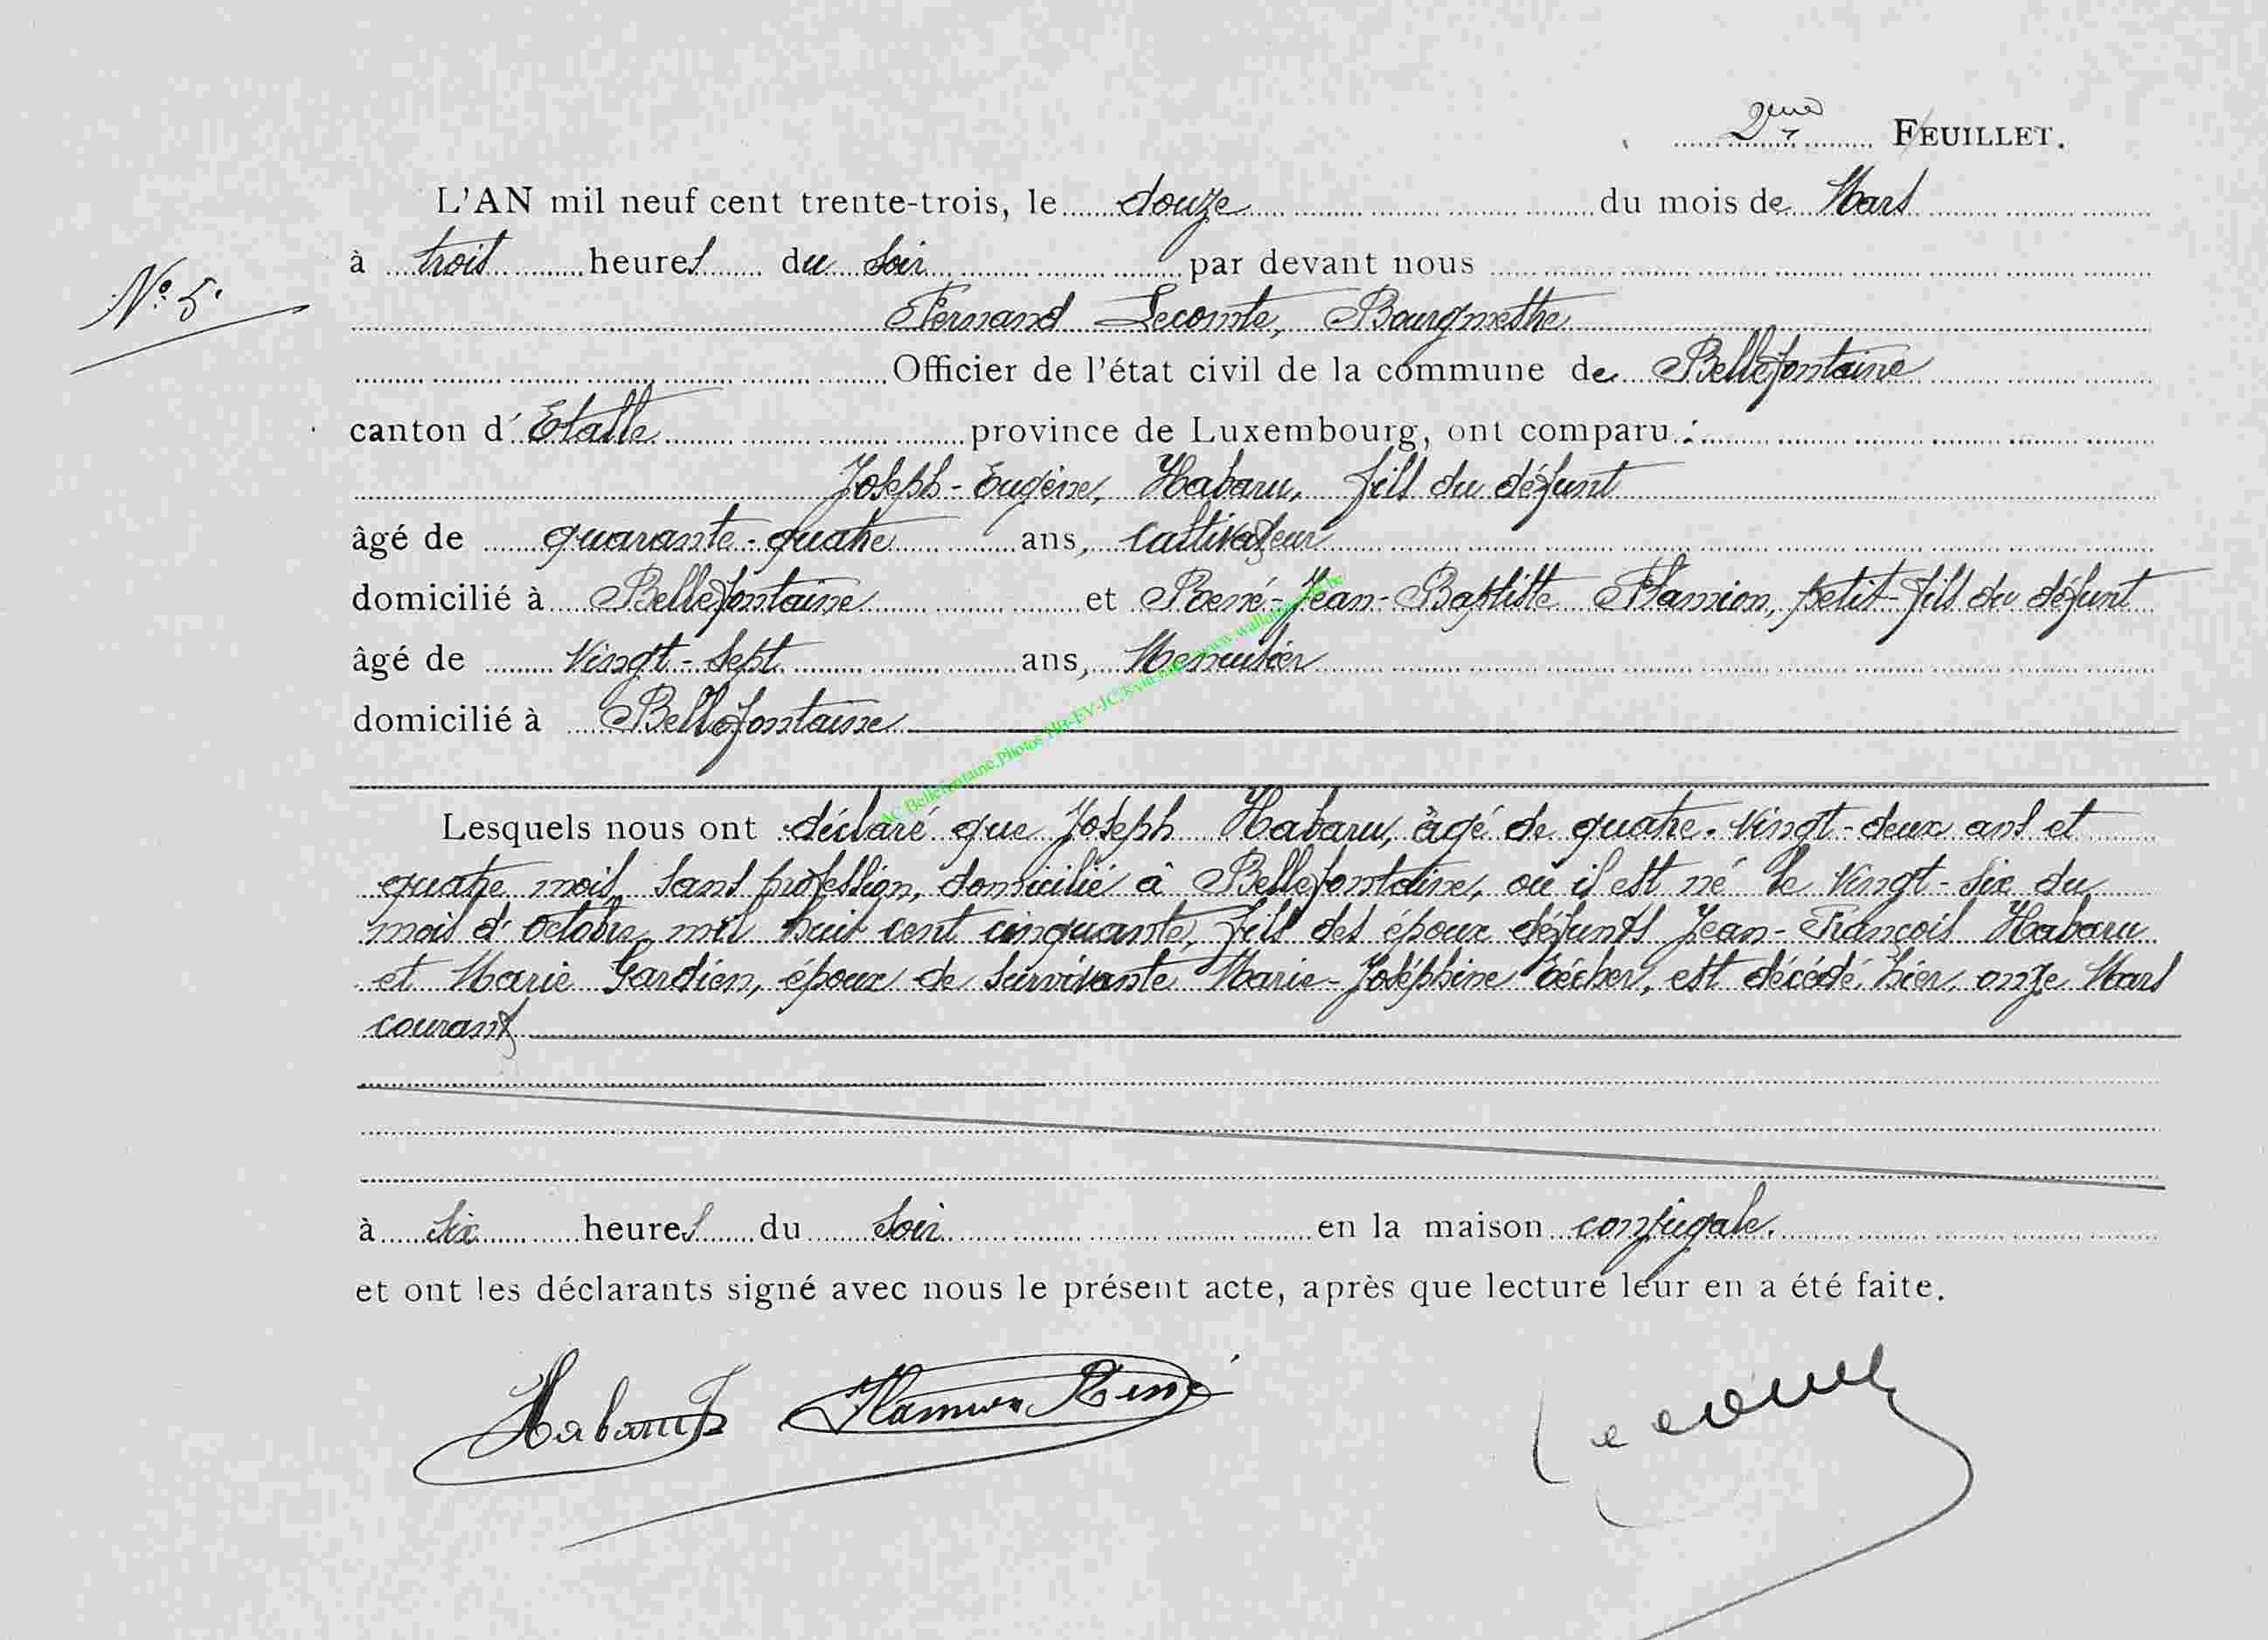 2eme FEUILLET.
L'AN mil neuf cent trente-trois, le douze du mois de Mars
à trois heures du soir par devant nous
N° 5.
Fernand Lecomte, Bourgmestre
Officier de l'état civil de la commune de Bellefontaine
canton d'Etalle province de Luxembourg, ont comparu :
Joseph-Eugène, Habaru, fils du défunt
âgé de quarante-quatre ans, cultivateur
domicilié à Bellefontaine et René-Jean-Baptiste Hamion, petit-fils du défunt
âgé de vingt-sept ans, Menuisier
domicilié à Bellefontaine
AC Bellefontaine.Photos
Lesquels nous ont déclaré que Joseph Habaru, âgé de quatre-vingt-deux ans et
quatre mois, sans profession, domicilié à Bellefontaine, où il est né le vingt-six du
mois d'octobre mil huit cent cinquante, fils des époux défunts Jean-François Habaru
et Marie Gardien, époux de survivante Marie-Joséphine Bécher, est décédé hier, onze Mars
courant
à six heures du soir en la maison conjugale.
et ont les déclarants signé avec nous le présent acte, après que lecture leur en a été faite.
Habaru J Hamion René